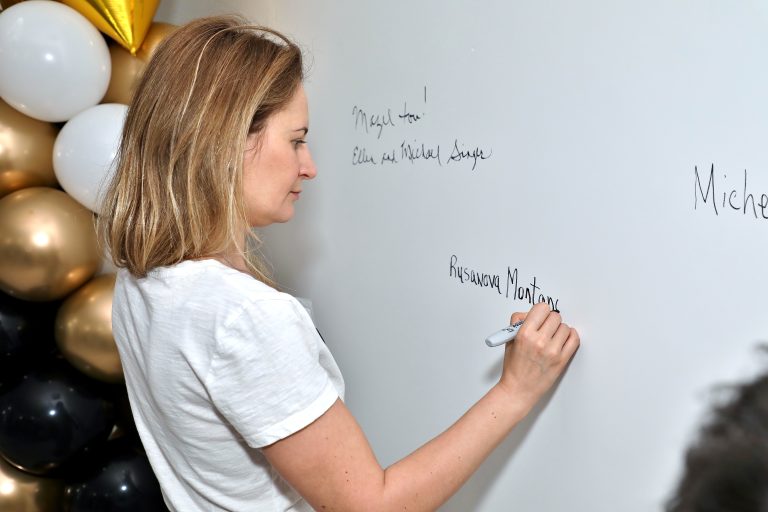 Mazel tov!
Ellen and Michael Singer
Miche
Rusanova Montana